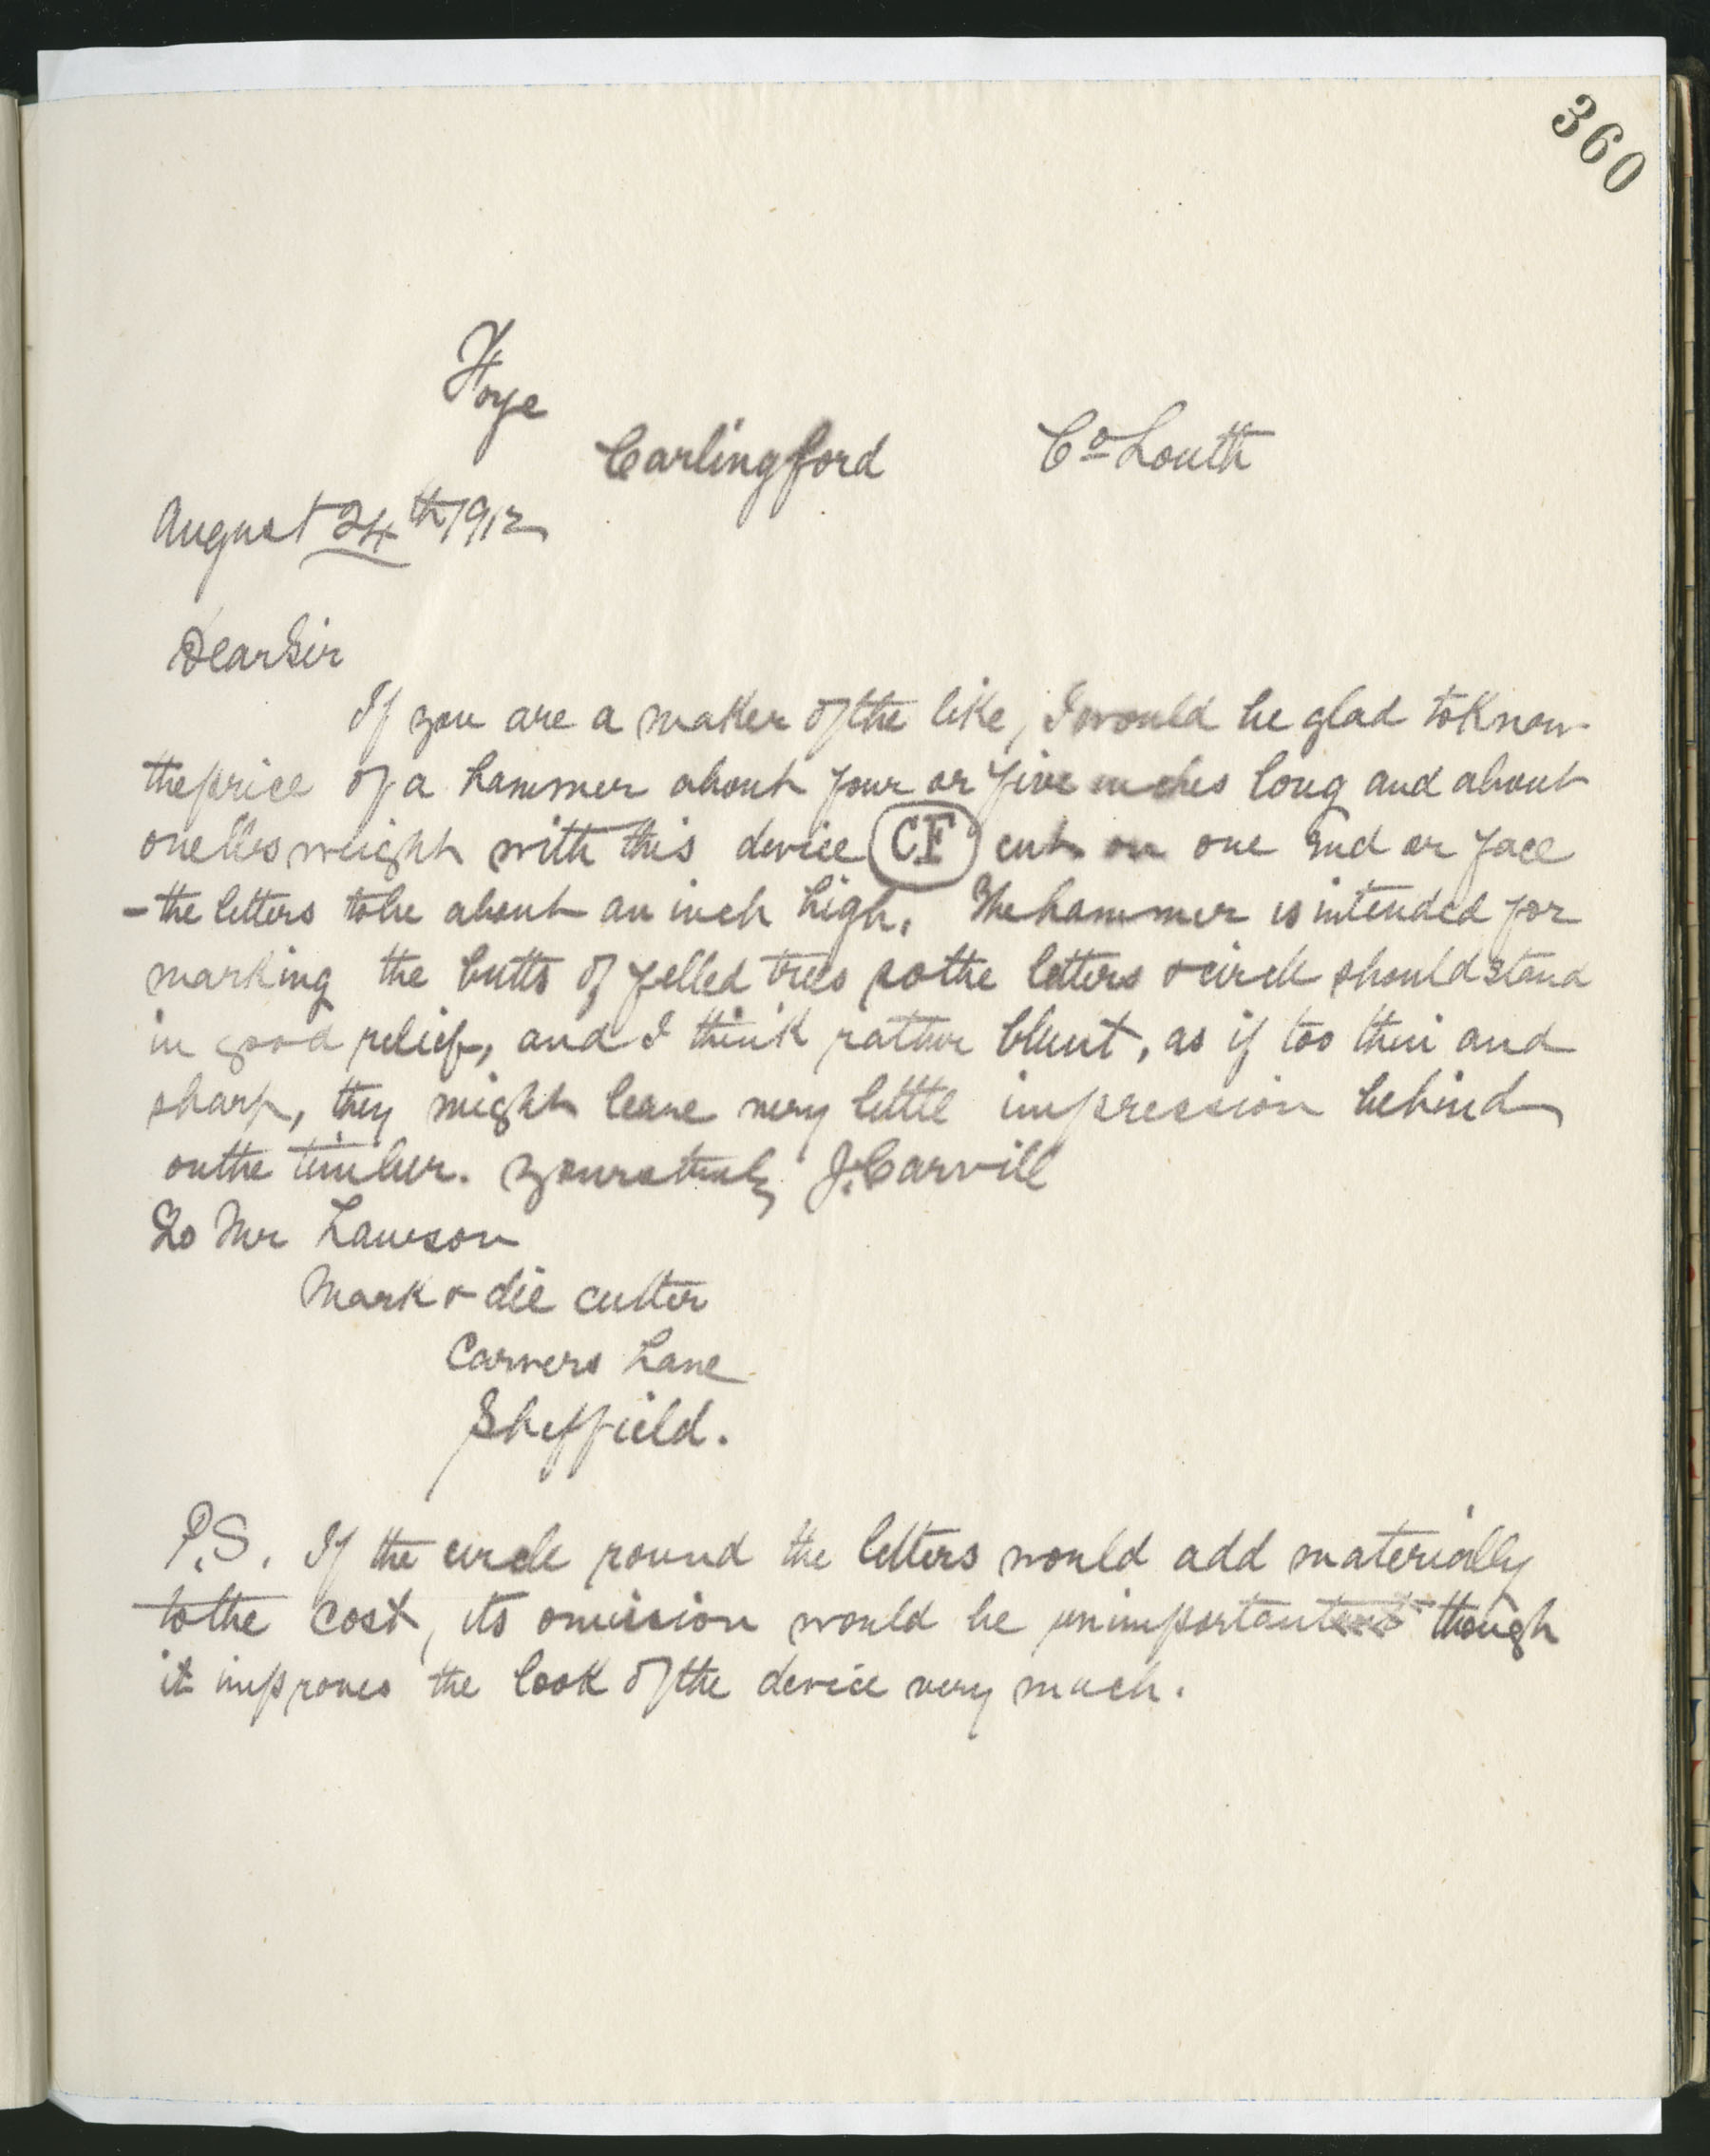 360
Foye
Carlingford Co Louth
August 24th 1912
Dear Sir
If you are a maker of the like, I would be glad to know
the price of a hammer about four or five inches long and about
one lbs weight with this device CF cut on one end or face
- the letters to be about an inch high. The hammer is intended for
marking the butts of felled trees so the letters & circle should stand
in good relief, and I think rather blunt, as if too thin and
sharp, they might leave very little impression behind
on the timber. Yours truly J. Carvill
To Mr Lawson
Mark & die cutter
Carvers Lane
Sheffield.
P.S. If the circle round the letters would add materially
to the cost, its omission would be unimportant though
it improves the look of the device very much.